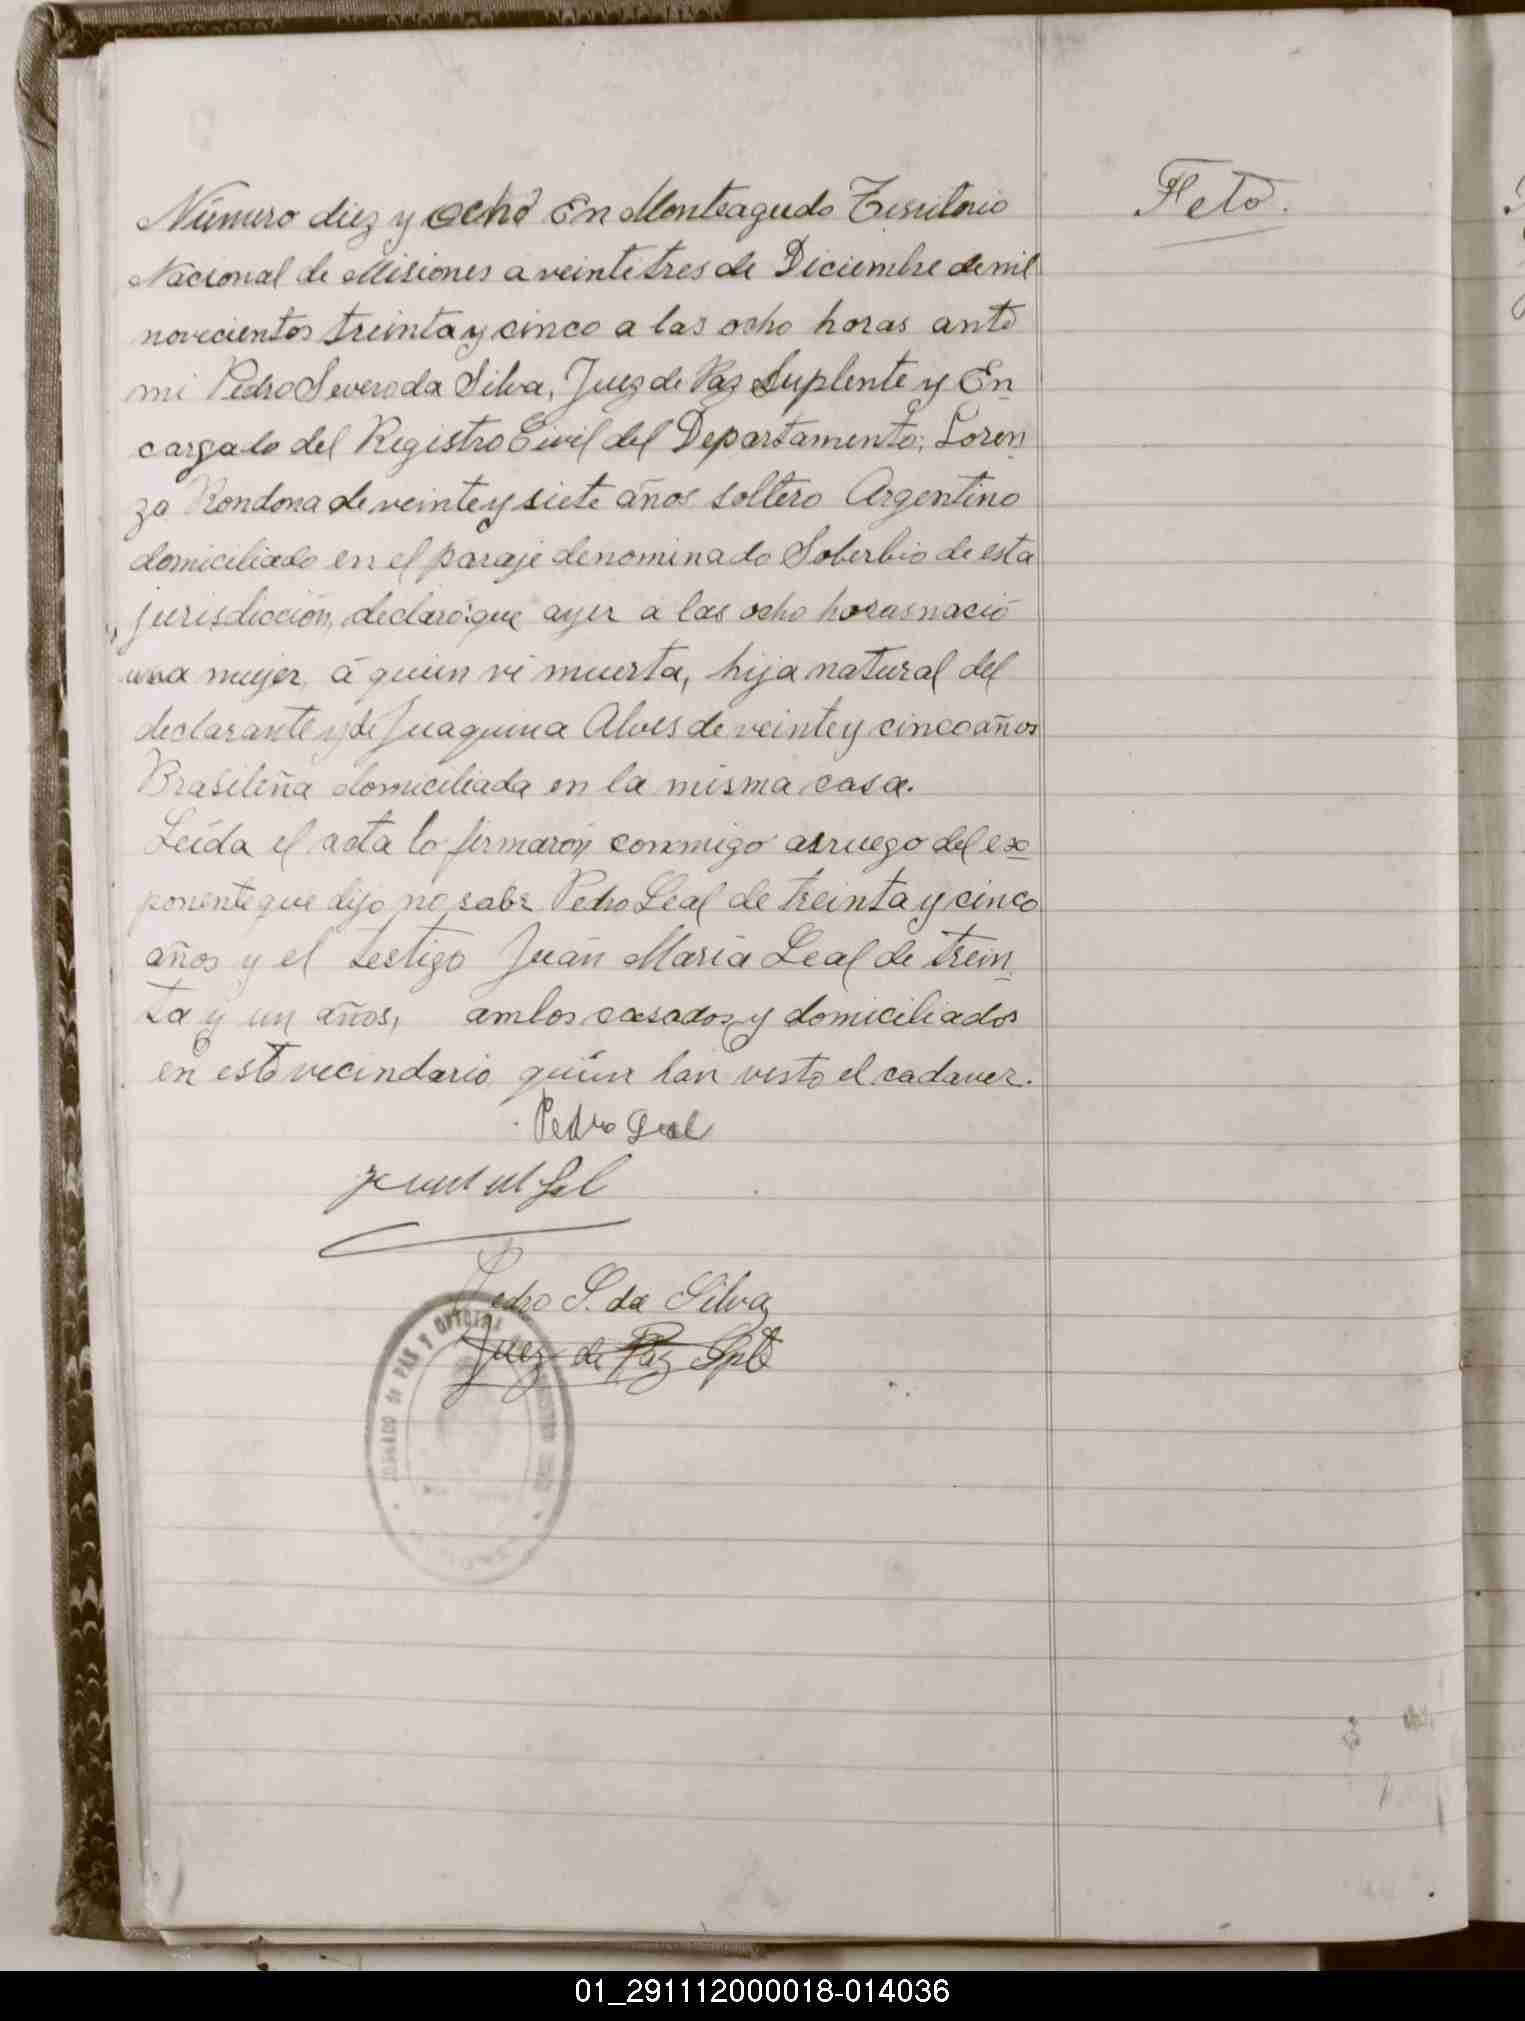 Número diez y ocho En Monteagudo Territorio
Nacional de Misiones a veintetres de Diciembre de mil
novecientos treinta y cinco a las ocho horas ante
mi Pedro Severo da Silva, Juez de Paz Suplente y En
cargado del Registro Civil del Departamento; Loren
zo Rondona de veinte y siete años soltero Argentino
domiciliado en el paraje denominado Soberbio de esta
jurisdicción, declaró: que ayer a las ocho horas nació
una mujer á quien ví muerta, hija natural del
declarante y de Juaquina Alves de veinte y cinco años
Brasileña domiciliada en la misma casa.
Leída el acta lo firmarón conmigo asruego del ex
ponente que dijo no sabr Pedro Leal de treinta y cinco
años y el testigo Juán María Leal de trein
ta y un años, ambos casados y domiciliados
en este vecindario quien han visto el cadaver.
Pedro Leal
Pedro S. da Silva
Juez de Paz Splte
JUZGADO DE PAZ Y OFICINA
Feto.
01_291112000018-014036